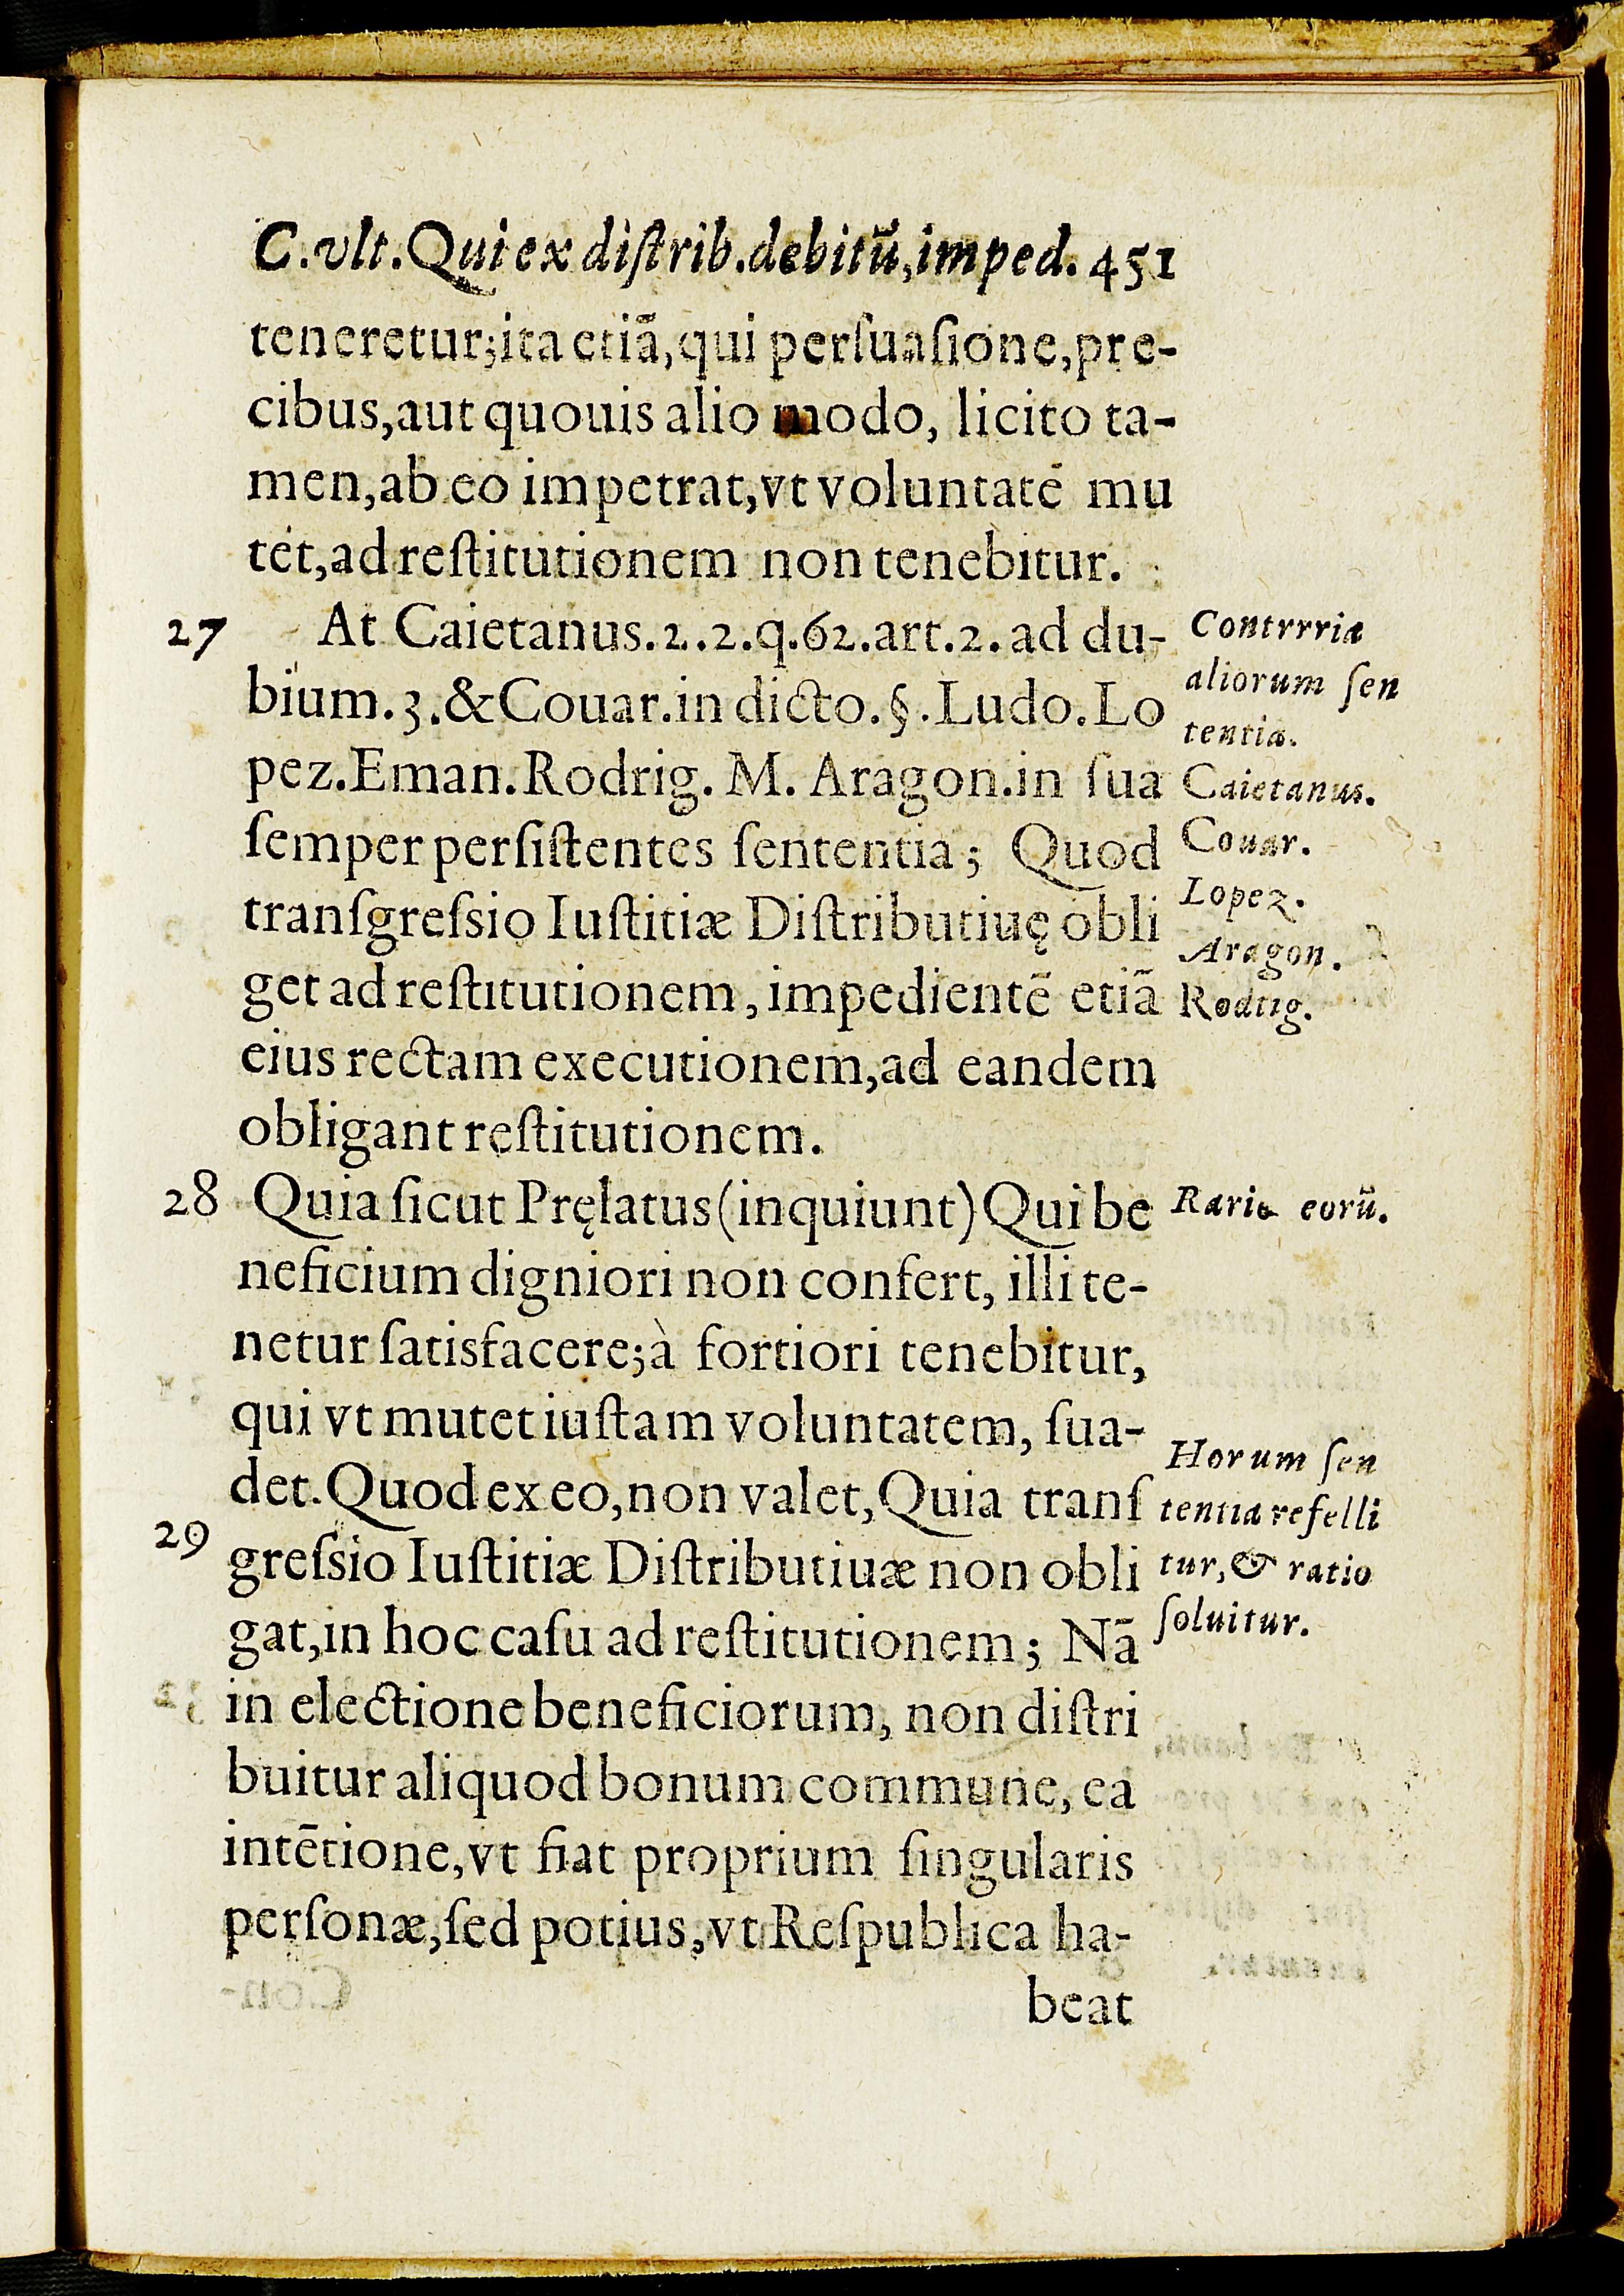 C.vlt.Qui ex diſtrib.debitū,imped. 451
teneretur;ita etiā,qui perſuaſione,pre-
cibus,aut quouis alio modo, licito ta-
men,ab eo impetrat,vt voluntatē mu
tet,ad reſtitutionem non tenebitur.
27 At Caietanus.2.2.q.62.art.2. ad du-
bium.3.&Couar.in dicto.§.Ludo.Lo
pez.Eman.Rodrig. M. Aragon.in ſua
ſemper perſiſtentes ſententia; Quod
tranſgreſsio Iuſtitiæ Diſtributiuę obli
get ad reſtitutionem, impedientē etiā
eius rectam executionem,ad eandem
obligant reſtitutionem.
28 Quia ſicut Pręlatus (inquiunt) Qui be
neficium digniori non confert, illi te-
netur ſatisfacere;à fortiori tenebitur,
qui vt mutet iuſtam voluntatem, ſua-
det. Quod ex eo,non valet,Quia tranſ
29
greſsio Iuſtitiæ Diſtributiuæ non obli
gat,in hoc caſu ad reſtitutionem; Nā
in electione beneficiorum, non diſtri
buitur aliquod bonum commune, ea
intētione,vt fiat proprium ſingularis
perſonæ,ſed potius,vt Reſpublica ha-
beat
Contrrria
aliorum ſen
tentia.
Caietanus.
Couar.
Lopez.
Aragon.
Rodrig.
Rario eorū.
Horum ſen
tentia refelli
tur,& ratio
ſoluitur.